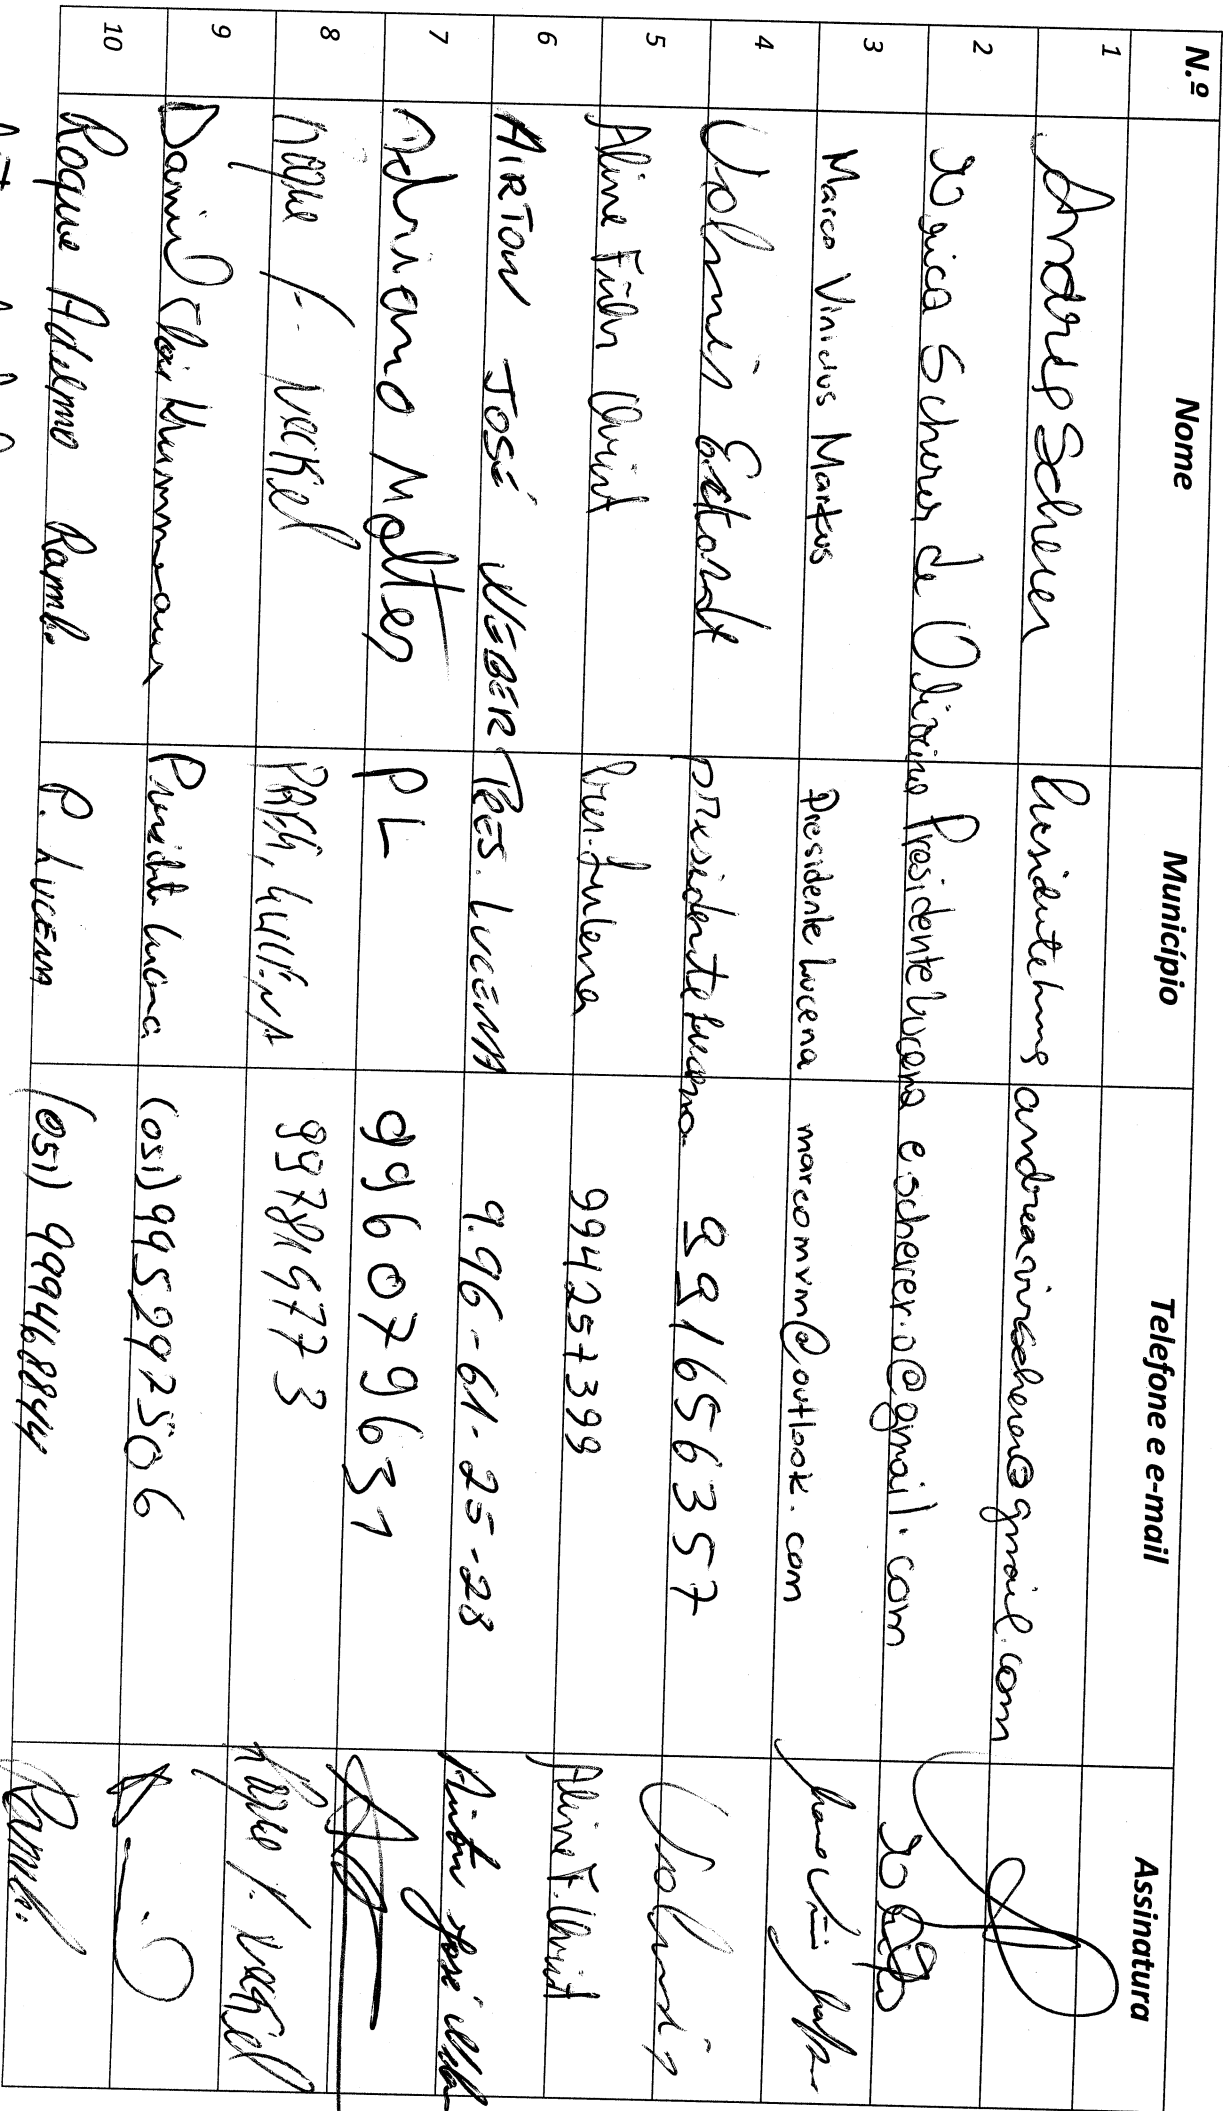 N.º Nome Município Telefone e e-mail Assinatura
1 Andrea Scherer Presidente andreavivscherer@gmail.com
2 Scherer de Oliveira Presidente Lucena escherer.o@gmail.com
3 Marco Vinicius Markus Presidente Lucena marcomvm@outlook.com
4 Volmir Eckardt Presidente Lucena 991656357 Volmir
5 Aline Führ 994257399 Aline F.
6 AIRTON JOSÉ WEBER PRES. LUCENA 9.96-61-25-28 Airton José
7 Adriano Molter PL 996079631
8 Roque Neckel 997819773 Roque Neckel
9 Daniel Presidente Lucena (051) 995297506
10 Roque Adelmo Rambo P. LUCENA (051) 999468844 Rambo